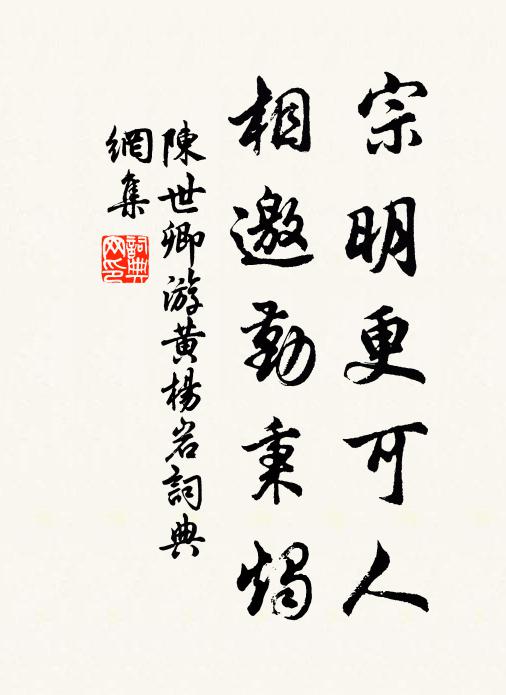 宗明更可人
相邀勤秉燭
陳世卿游黃楊岩詞典
網集
詞典
网印